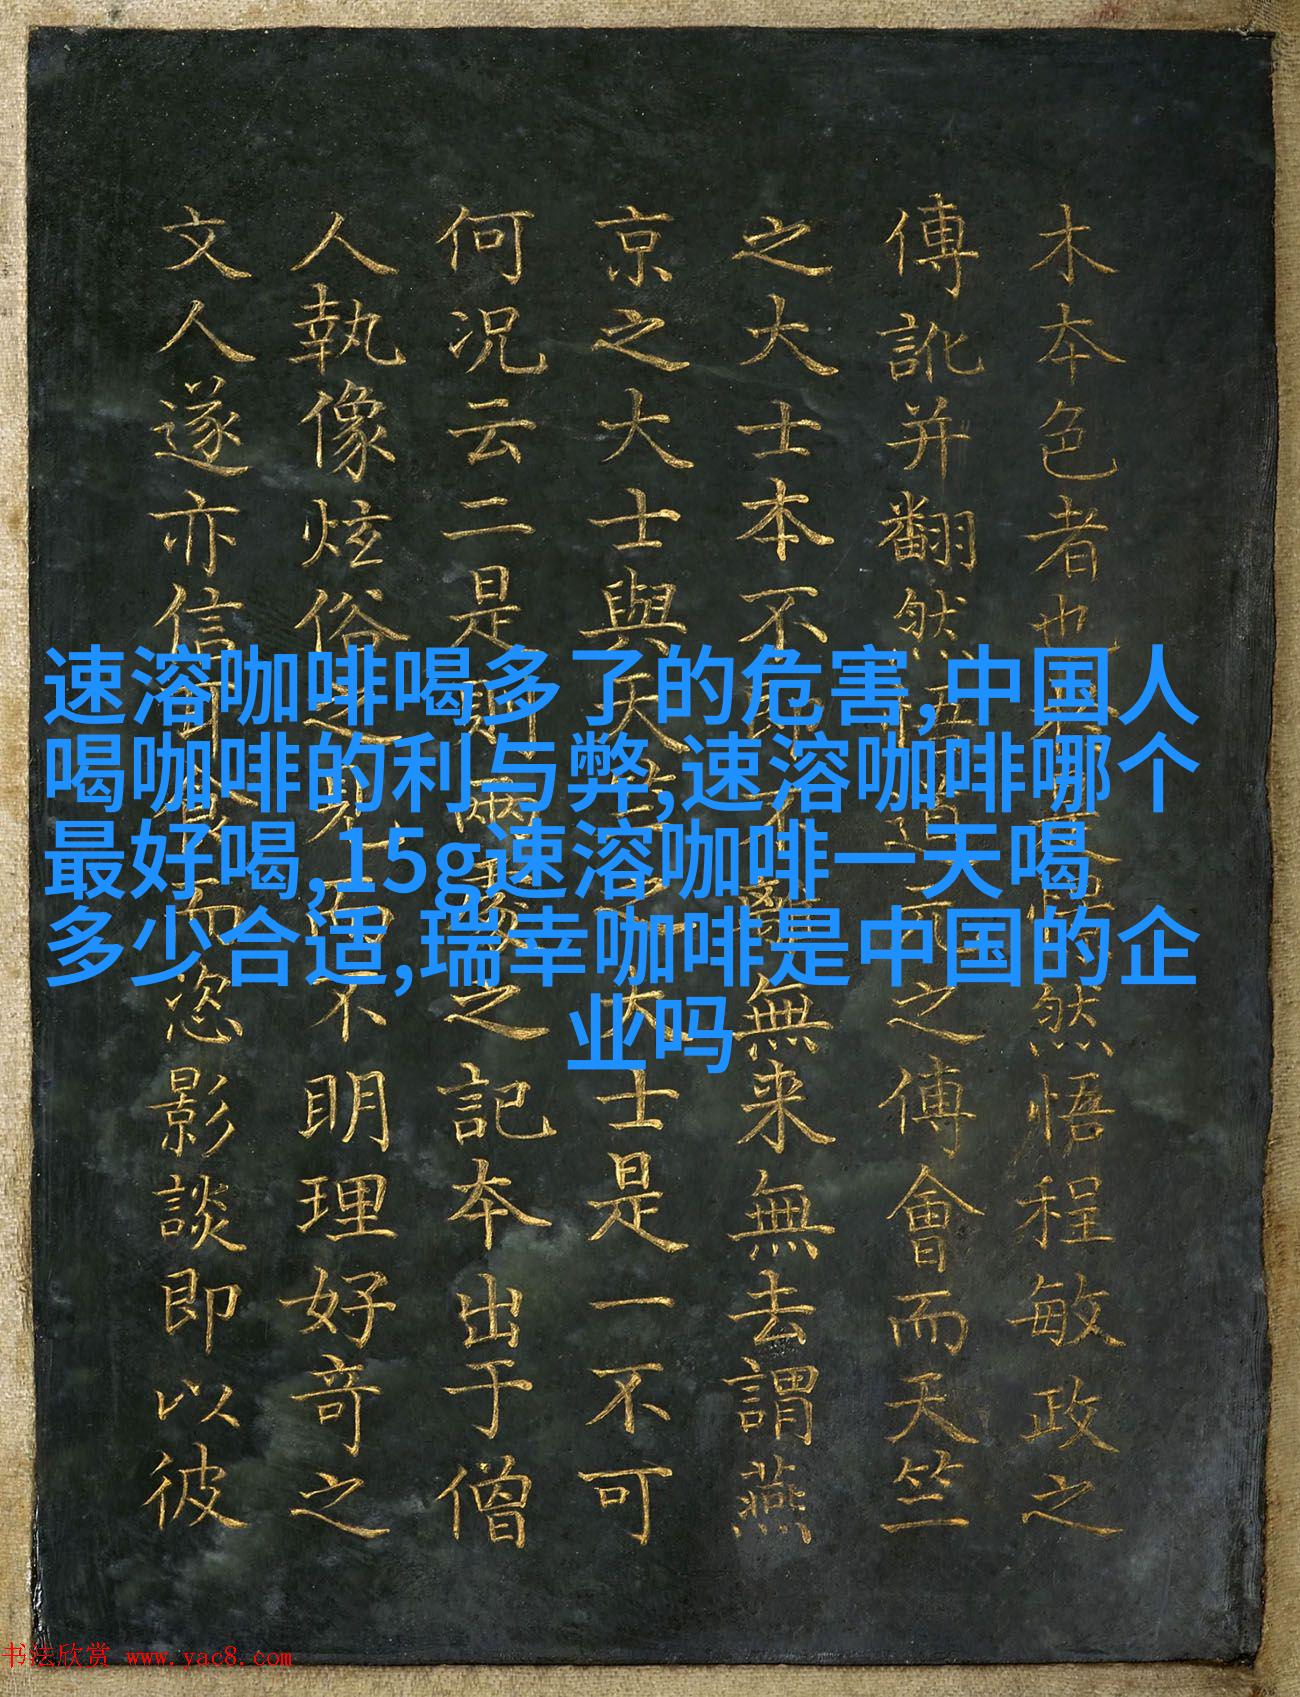 木夲色者也然悟程敏政之
傳訛并翻然之傅會而天竺
之大士本不即無来無去謂燕
京之大士與天竺之大士是一不可
何况云二是則兩之記夲出于僧
人執像炫俗之見而不明理好奇之
文人遂亦信而恣影談即以彼
速溶咖啡喝多了的危害,中国人
喝咖啡的利与弊,速溶咖啡哪个
最好喝,15g速溶咖啡一天喝
多少合适,瑞幸咖啡是中国的企
业吗
书法欣赏 www.yac8.com